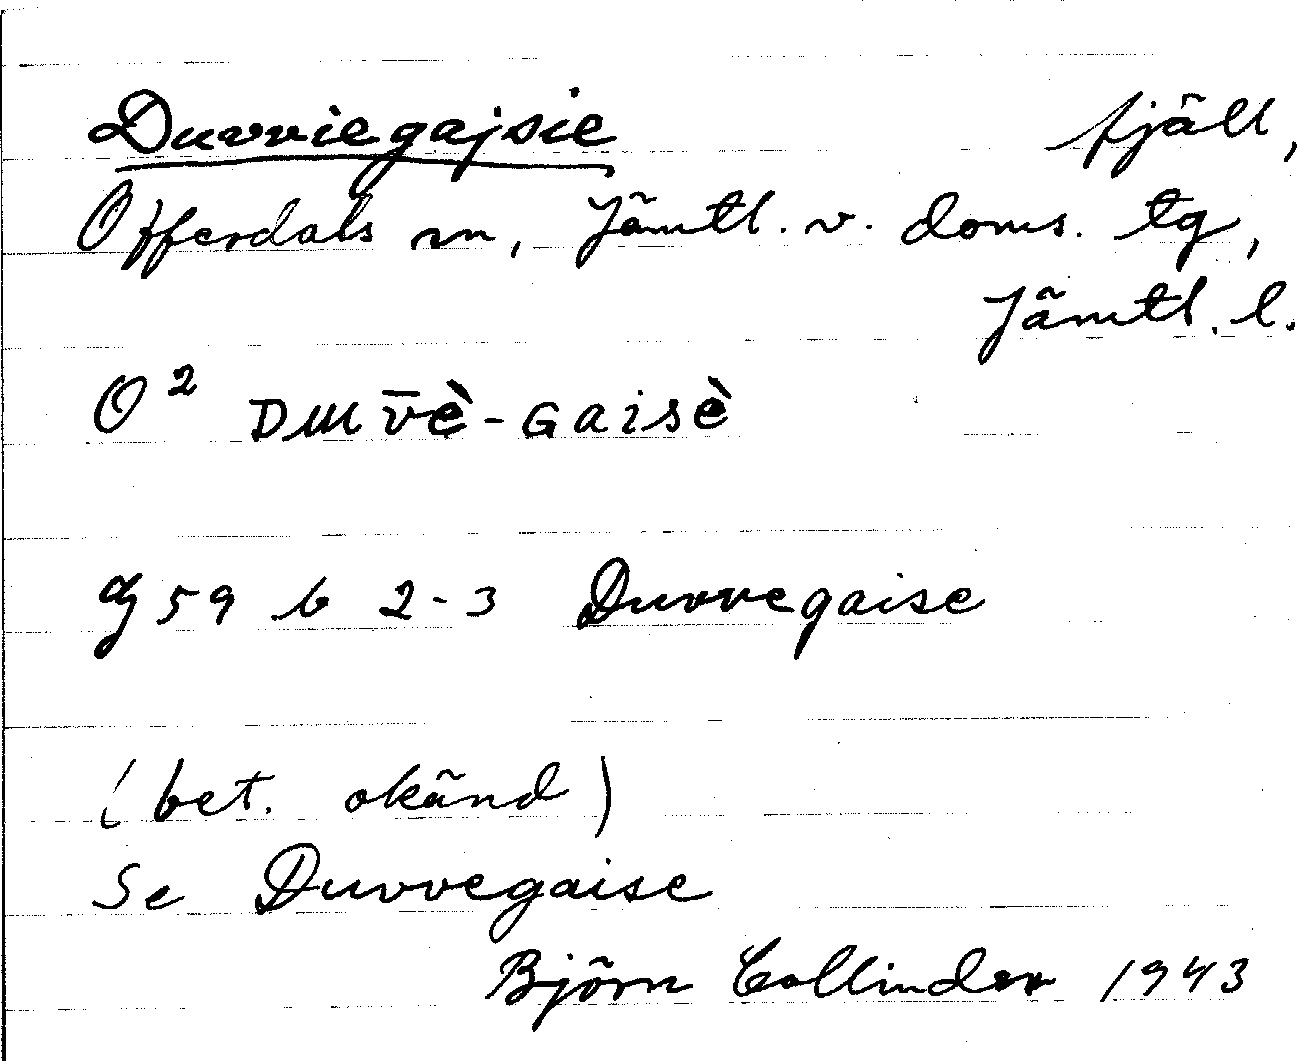 Duvviegajsie fjäll,
Offerdals sn, Jämtl. v. doms. tg,
Jämtl. l.
O² Duv̄è-Gaisè
G 59 b 2-3 Duvvegaise
(bet. okänd)
Se Duvvegaise
Björn Collinder 1943